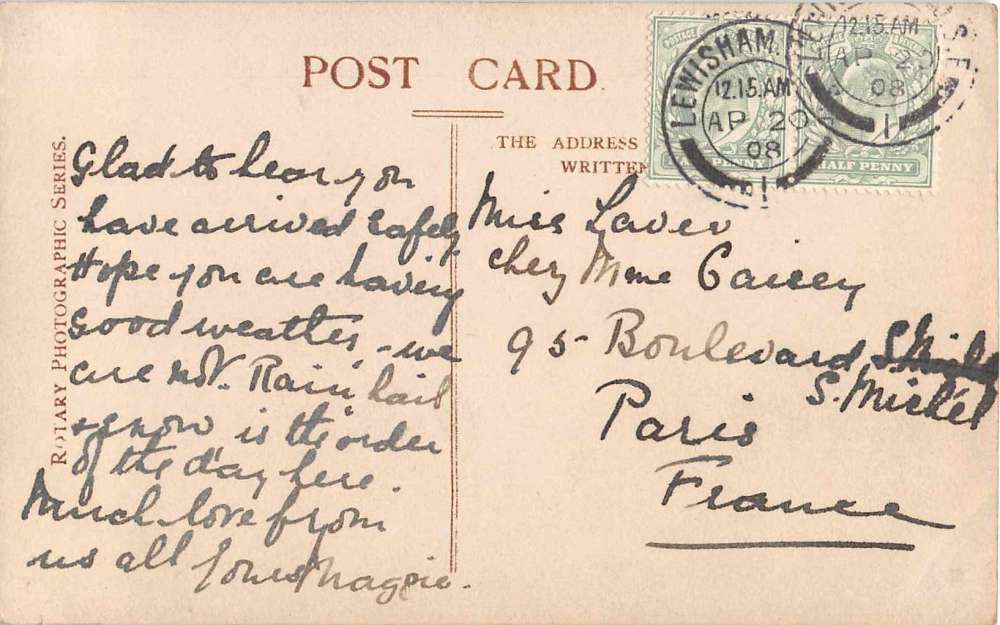 POST CARD
THE ADDRESS
WRITTEN
ROTARY PHOTOGRAPHIC SERIES.
LEWISHAM.
12.15.AM
AP 20
08
1
12.15.AM
AP 20
08
1
PENNY
HALF PENNY
Glad to hear you
have arrived safely
Hope you are having
good weather, - we
are not. Rain, hail
& snow is the order
of the day here.
Much love from
us all Yours Maggie.
Miss Laver
chez Mme
95 Boulevard
S. Michel
Paris
France